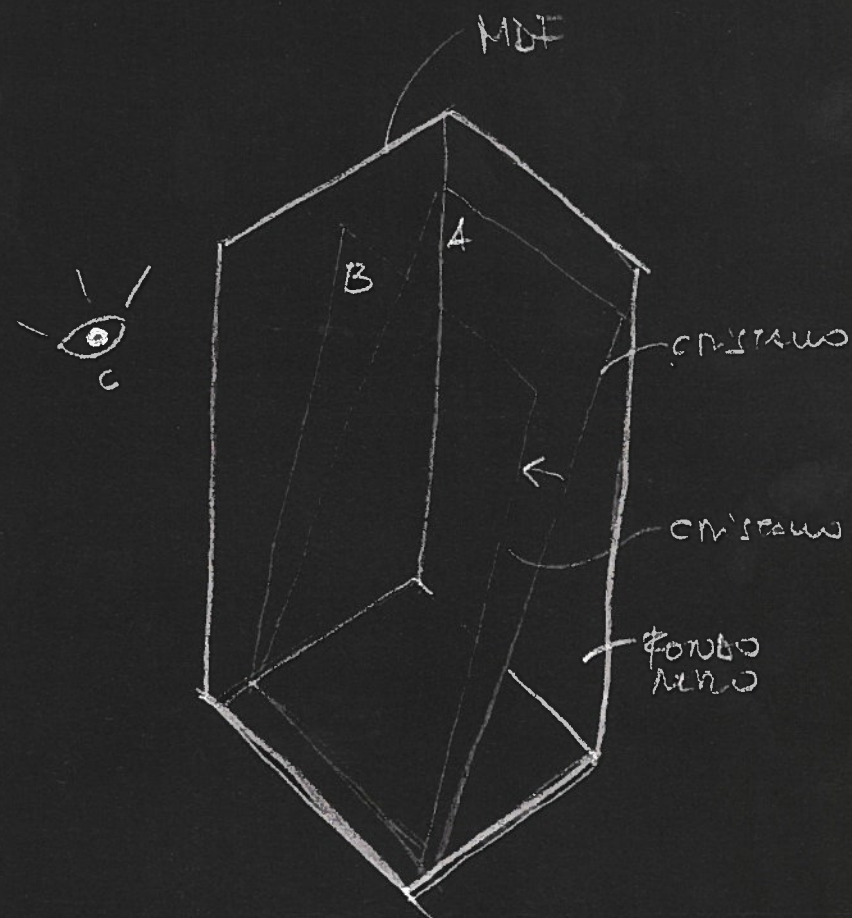 MDF
A
B
CRISTALLO
C
CRISTALLO
FONDO
NERO